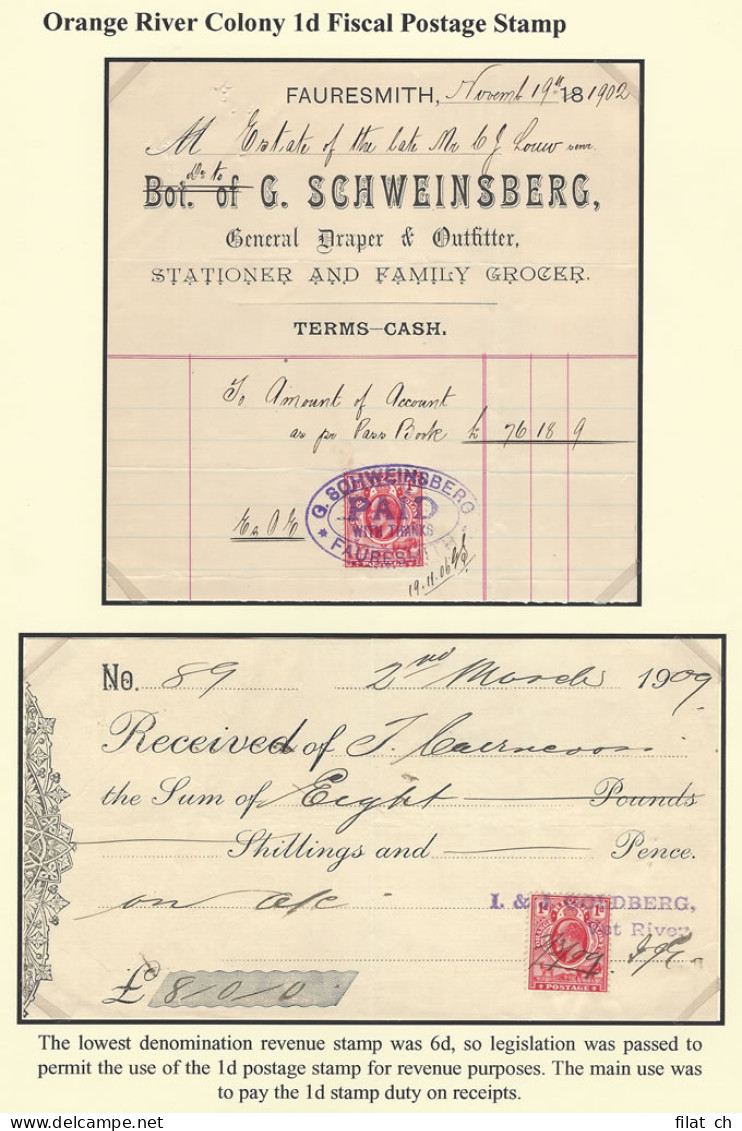 Orange River Colony 1d Fiscal Postage Stamp
FAURESMITH, Novemb 19th 18 1902
M Estate of the late Mr C J Louw senr.
Dr to
Bot. of G. SCHWEINSBERG,
General Draper & Outfitter,
STATIONER AND FAMILY GROCER.
TERMS—CASH.
To Amount of Account
as per Pass Book £ 76 18 9
G. SCHWEINSBERG
PAID
WITH THANKS
FAURESMITH
E & O E
19.11.06
No. 89 2nd March 1909
Received of J.
the Sum of Eight Pounds
Shillings and Pence.
on a/c
I. & J. GOLDBERG,
1d 1d
ORANGE
POSTAGE
£ 8/0/0
The lowest denomination revenue stamp was 6d, so legislation was passed to
permit the use of the 1d postage stamp for revenue purposes. The main use was
to pay the 1d stamp duty on receipts.
filat ch